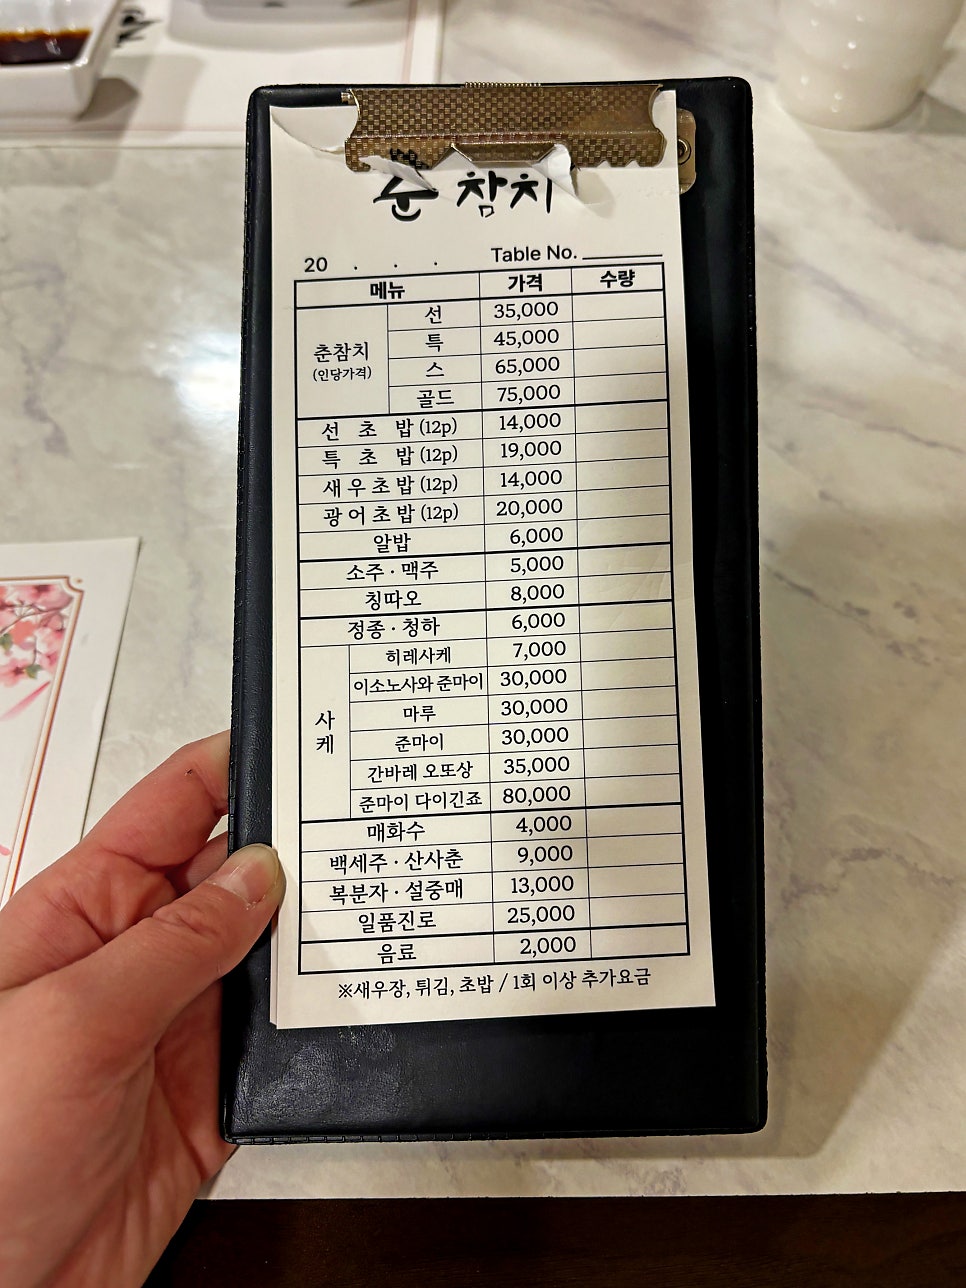 춘참치
20 . . . Table No.
메뉴 가격 수량
춘참치 (인당가격)
선 35,000
특 45,000
스 65,000
골드 75,000
선 초 밥 (12p) 14,000
특 초 밥 (12p) 19,000
새우초밥 (12p) 14,000
광어초밥 (12p) 20,000
알밥 6,000
소주 · 맥주 5,000
칭따오 8,000
정종 · 청하 6,000
사케
히레사케 7,000
이소노사와 준마이 30,000
마루 30,000
준마이 30,000
간바레 오또상 35,000
준마이 다이긴죠 80,000
매화수 4,000
백세주 · 산사춘 9,000
복분자 · 설중매 13,000
일품진로 25,000
음료 2,000
※새우장, 튀김, 초밥 / 1회 이상 추가요금